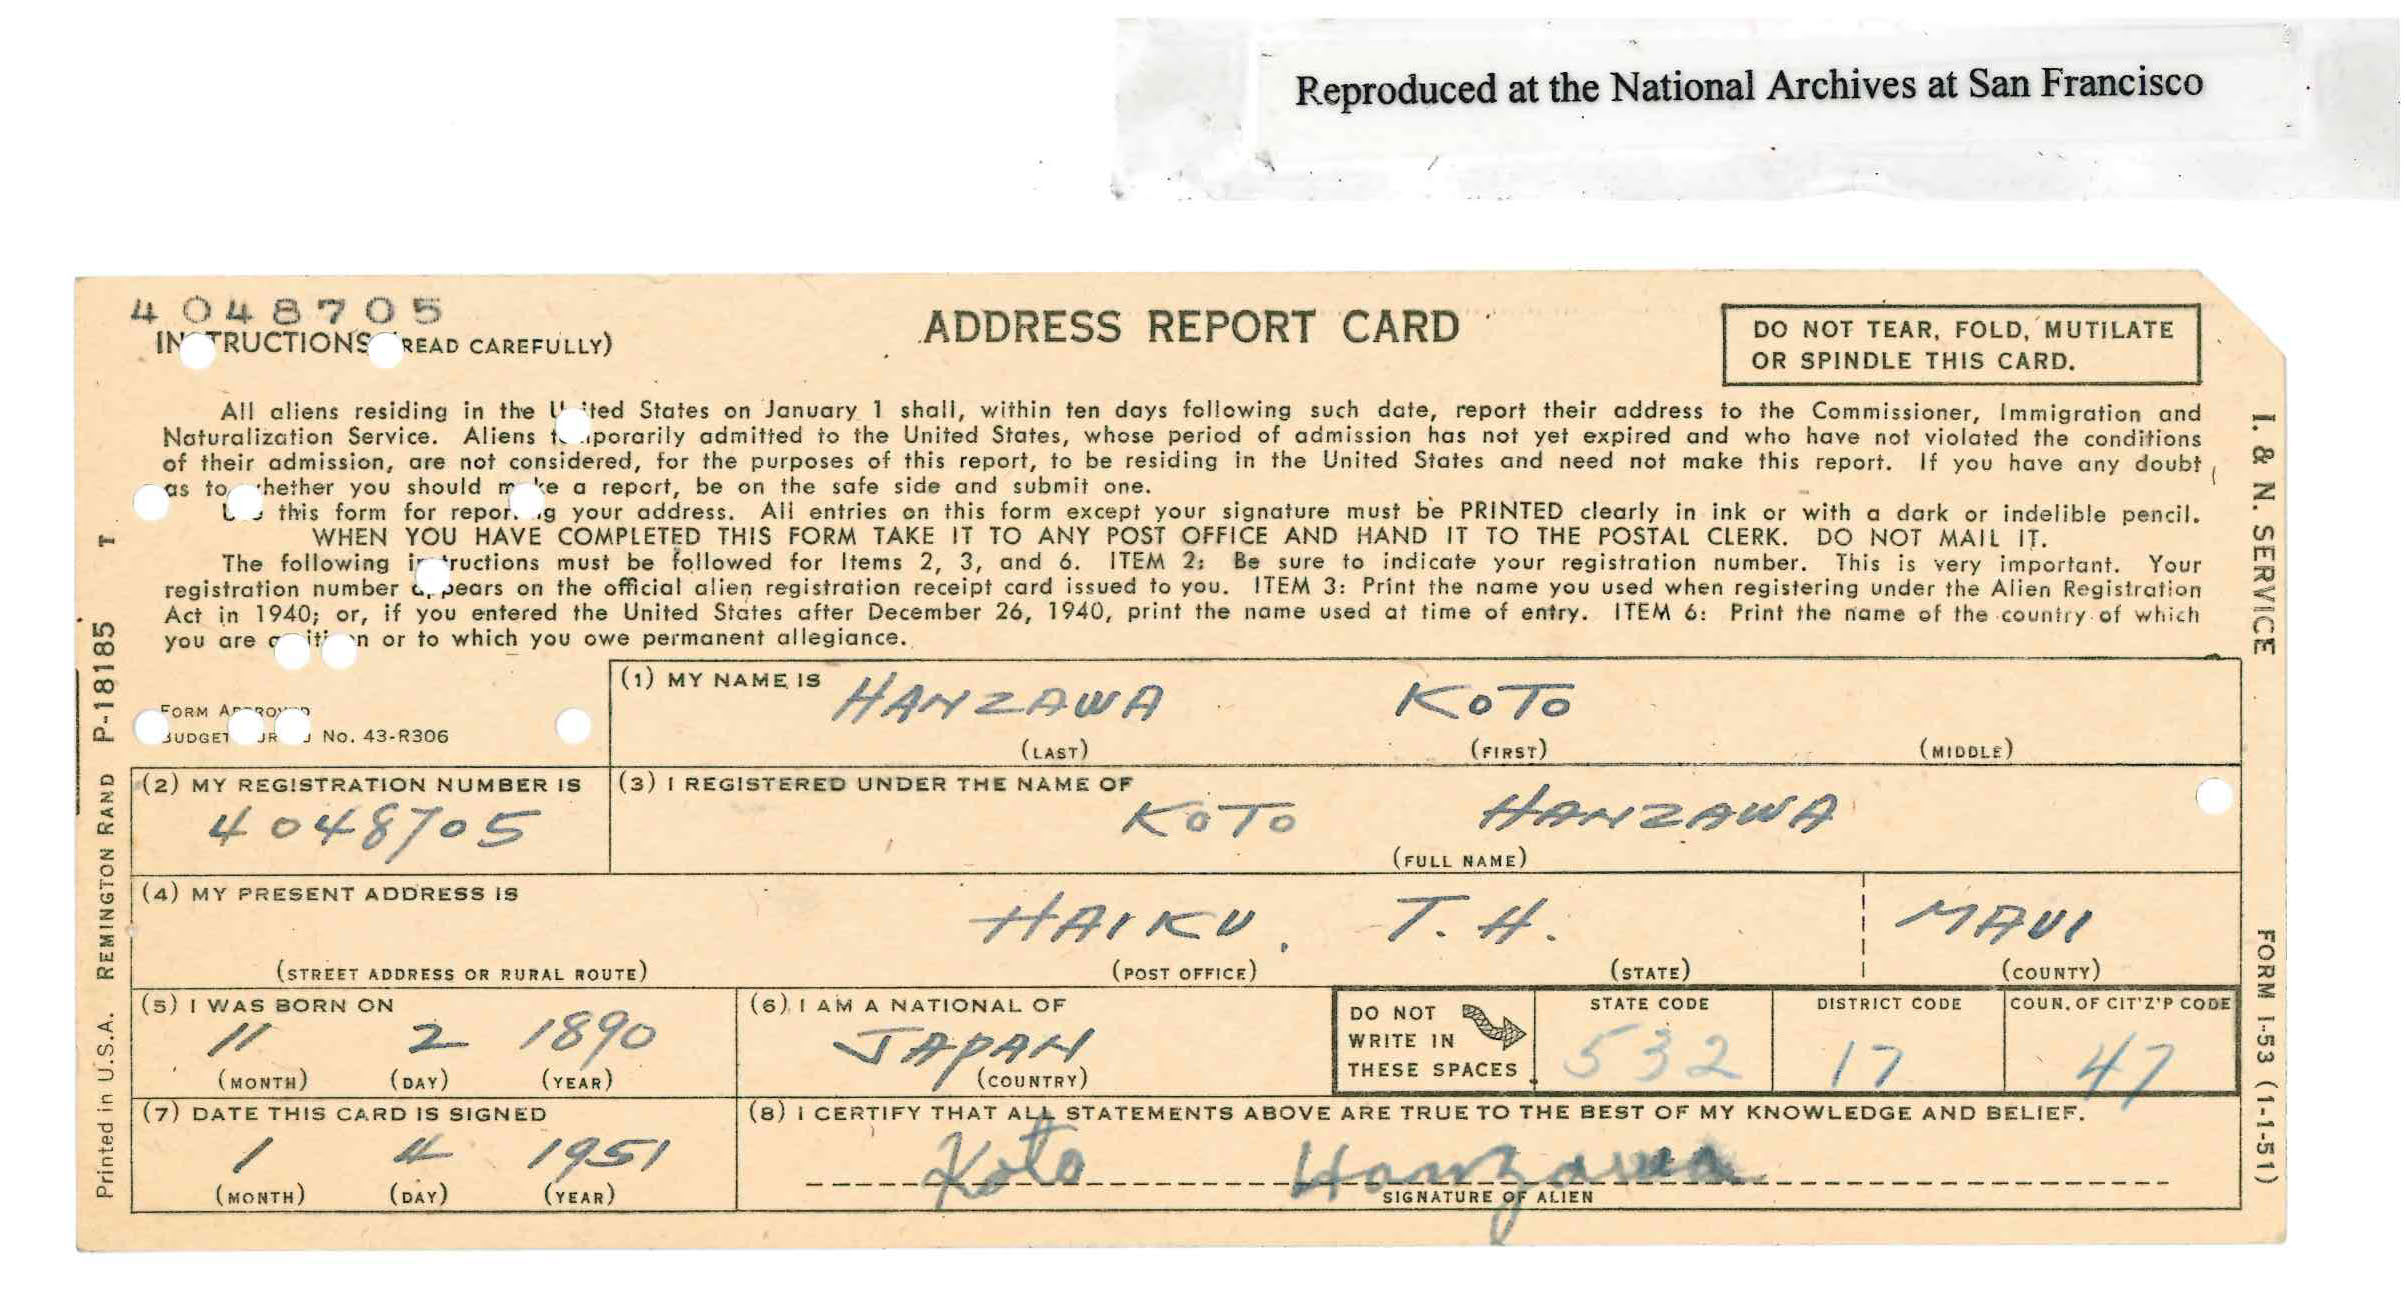 Reproduced at the National Archives at San Francisco
4048705
INSTRUCTIONS (READ CAREFULLY)
ADDRESS REPORT CARD
DO NOT TEAR, FOLD, MUTILATE
OR SPINDLE THIS CARD.
All aliens residing in the United States on January 1 shall, within ten days following such date, report their address to the Commissioner, Immigration and
Naturalization Service. Aliens temporarily admitted to the United States, whose period of admission has not yet expired and who have not violated the conditions
of their admission, are not considered, for the purposes of this report, to be residing in the United States and need not make this report. If you have any doubt
as to whether you should make a report, be on the safe side and submit one.
Use this form for reporting your address. All entries on this form except your signature must be PRINTED clearly in ink or with a dark or indelible pencil.
WHEN YOU HAVE COMPLETED THIS FORM TAKE IT TO ANY POST OFFICE AND HAND IT TO THE POSTAL CLERK. DO NOT MAIL IT.
The following instructions must be followed for Items 2, 3, and 6. ITEM 2: Be sure to indicate your registration number. This is very important. Your
registration number appears on the official alien registration receipt card issued to you. ITEM 3: Print the name you used when registering under the Alien Registration
Act in 1940; or, if you entered the United States after December 26, 1940, print the name used at time of entry. ITEM 6: Print the name of the country of which
you are a citizen or to which you owe permanent allegiance.
FORM APPROVED
BUDGET BUREAU NO. 43-R306
(1) MY NAME IS HANZAWA KOTO
(LAST) (FIRST) (MIDDLE)
(2) MY REGISTRATION NUMBER IS
4048705
(3) I REGISTERED UNDER THE NAME OF
KOTO HANZAWA
(FULL NAME)
(4) MY PRESENT ADDRESS IS
HAIKU, T.H. MAUI
(STREET ADDRESS OR RURAL ROUTE) (POST OFFICE) (STATE) (COUNTY)
(5) I WAS BORN ON
11 2 1890
(MONTH) (DAY) (YEAR)
(6) I AM A NATIONAL OF
JAPAN
(COUNTRY)
DO NOT
WRITE IN
THESE SPACES
STATE CODE
532
DISTRICT CODE
17
COUN. OF CIT'Z'P CODE
47
(7) DATE THIS CARD IS SIGNED
1 4 1951
(MONTH) (DAY) (YEAR)
(8) I CERTIFY THAT ALL STATEMENTS ABOVE ARE TRUE TO THE BEST OF MY KNOWLEDGE AND BELIEF.
Koto Hanzawa
SIGNATURE OF ALIEN
Printed in U.S.A. REMINGTON RAND P-18185 T
I. & N. SERVICE FORM I-53 (1-1-51)